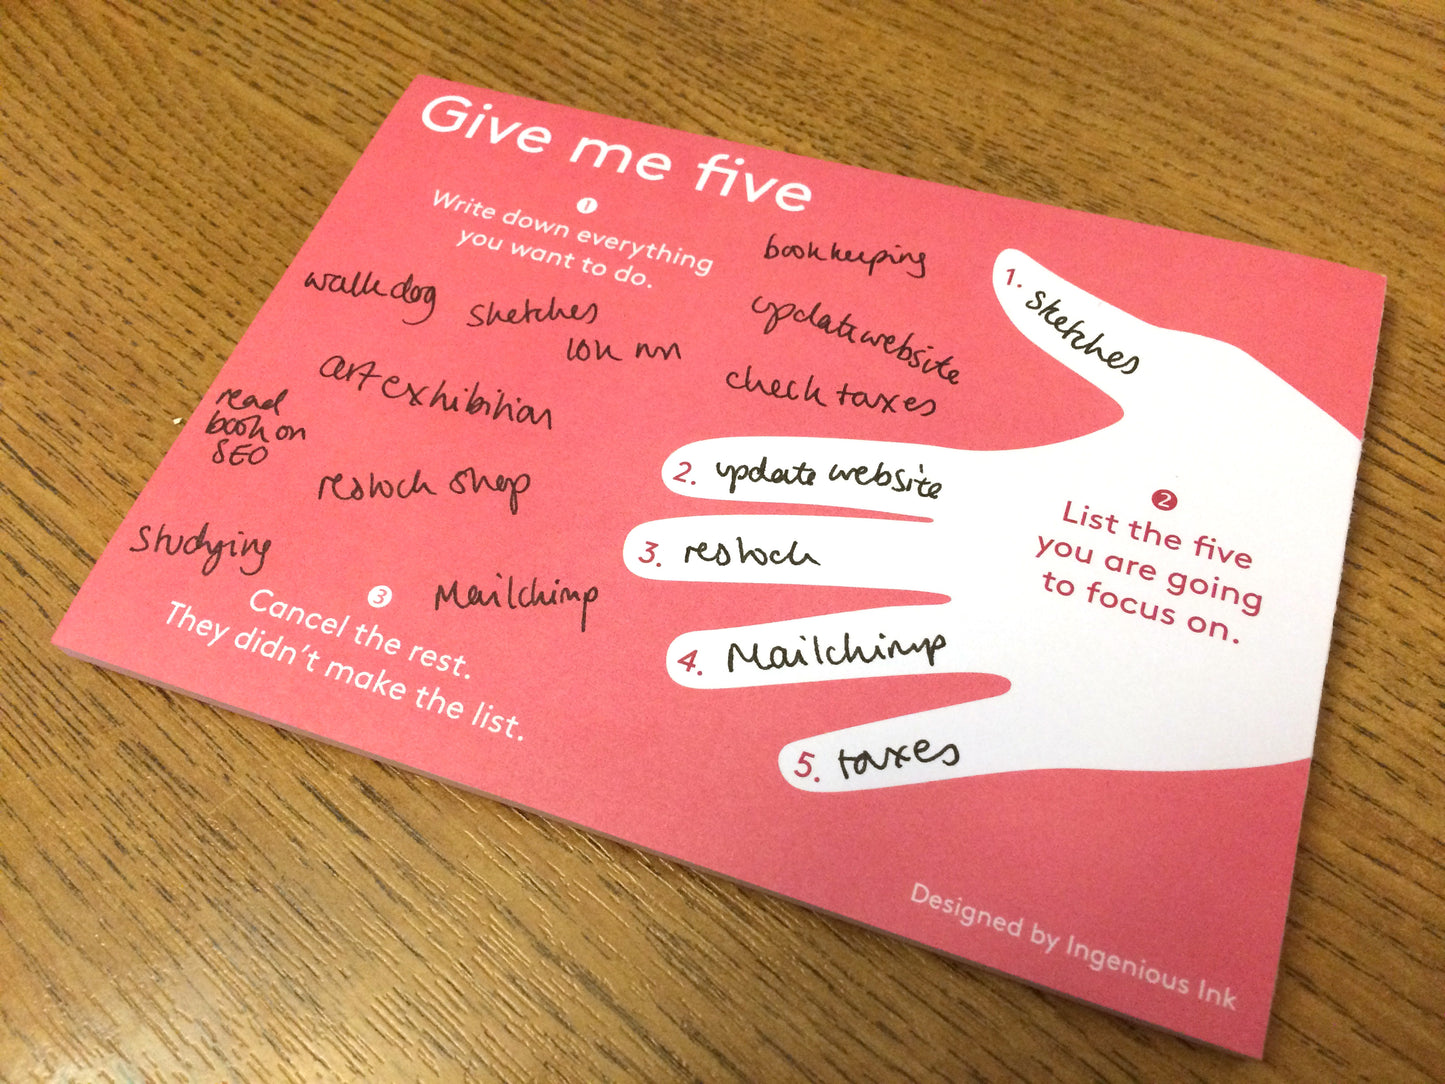 Give me five
1
Write down everything
you want to do.
walk dog
sketches
10k run
art exhibition
read
book on
SEO
restock shop
studying
Mailchimp
bookkeeping
update website
check taxes
1. sketches
2. update website
3. restock
4. Mailchimp
5. taxes
2
List the five
you are going
to focus on.
3
Cancel the rest.
They didn't make the list.
Designed by Ingenious Ink